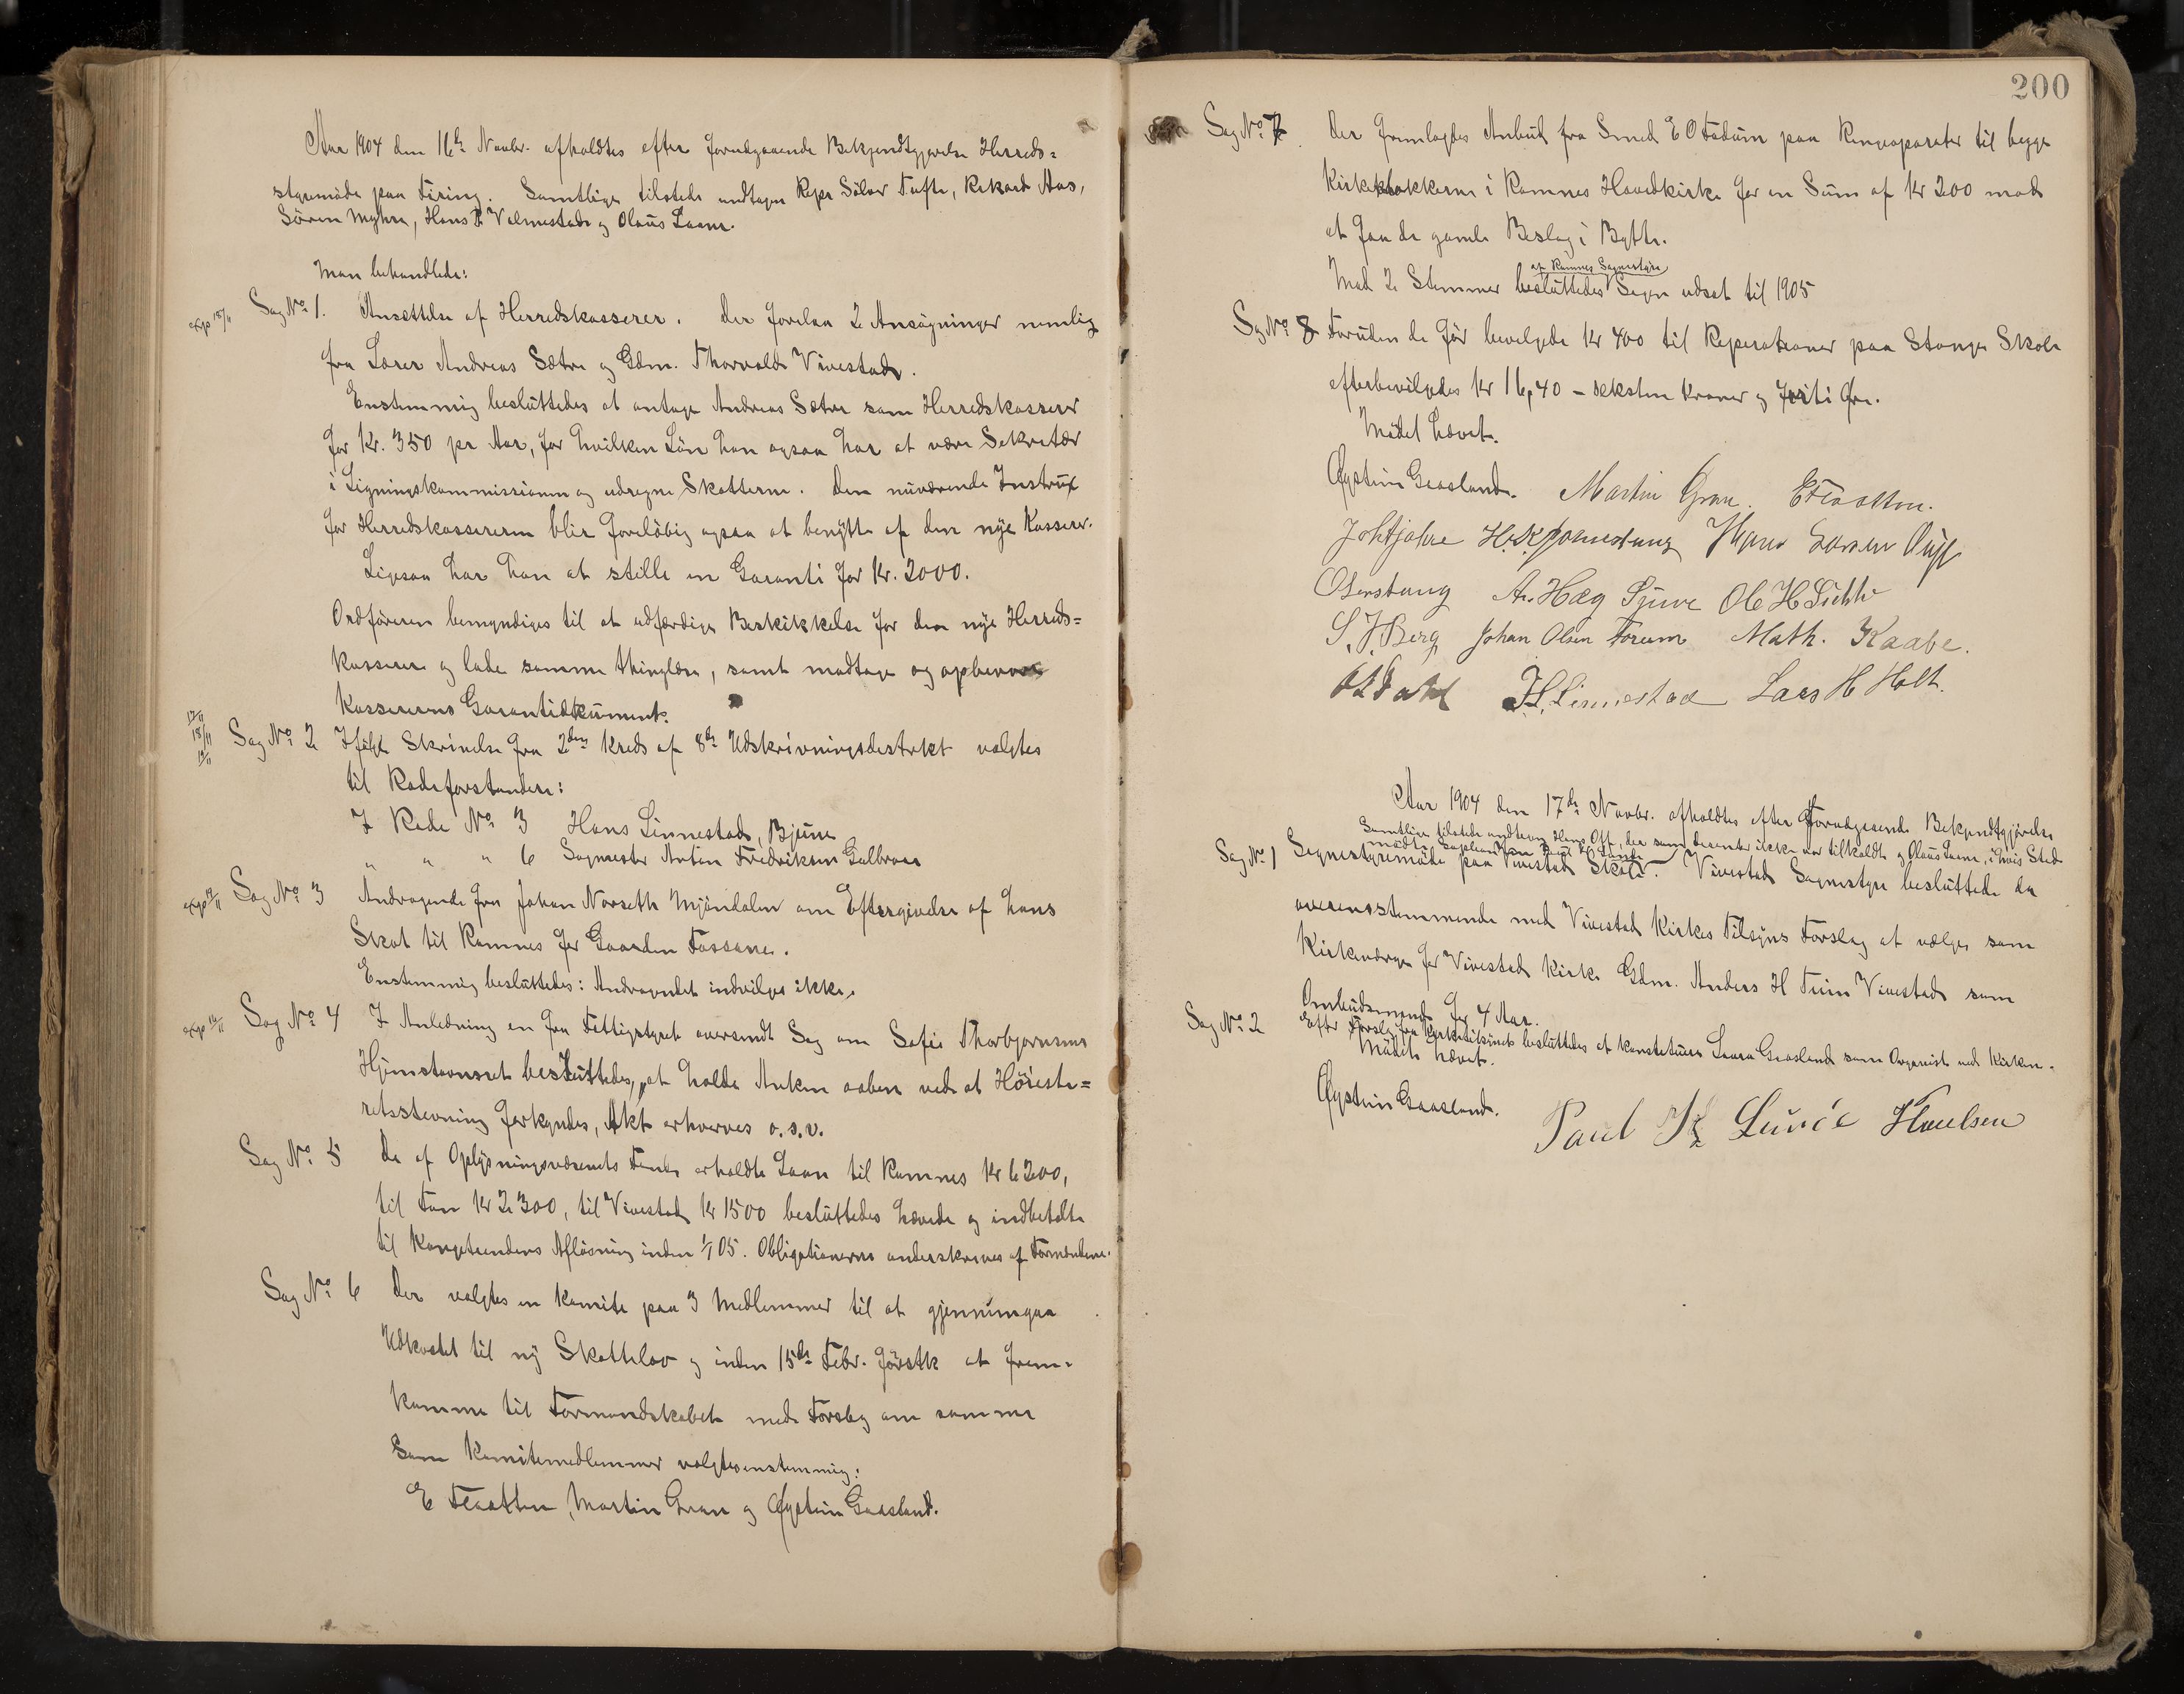 Aar 1904 den 16de Novbr. afholdtes efter forudgaaende Bekjendtgjørelse Herreds-
styremöde paa Firing. Samtlige tilstede undtagen Repr Sölver Tufte, Rikard Aas,
Sören Myhre, Hans P. Valmestad og Olaus Laane.
Man behandlede:
exp 18/11 Sag No 1. Ansættelse af Herredskasserer. Der forelaa 2 Ansøgninger nemlig
fra Lærer Andreas Sætre og Gdm. Thorvald Vivestad.
Enstemmig besluttedes at antage Andreas Sætre som Herredskasserer
for Kr. 350 pr Aar, for hvilken Lön han ogsaa har at være Sekretær
i Ligningskommissionen og udregne Skatterne. Den nuværende Instrux
for Herredskassereren blir foreløbig ogsaa at benytte af den nye Kasserer.
Ligesaa har han at stille en Garanti for Kr. 2000.
Ordføreren bemyndiges til at udfærdige Beskikkelse for den nye Herreds-
kasserer og lade samme thinglæse, samt modtage og opbevare
Kassererens Garantidokument.
Sag No 2 Ifølge Skrivelse fra 2den Kreds af 8de Udskrivningsdistrkt valgtes
til Rodeforstandere:
I Rode No 3 Hans Linnestad, Bjune
" " " 6 Sagmester Anton Fredriksen Gulbraar
exp 18/11 Sag No 3 Andragende fra Johan Norseth Mjöndalen om Eftergivelse af hans
Skat til Ramnes for Gaarden Fossane.
Enstemmig besluttedes: Andragendet indvilges ikke.
exp 18/11 Sag No 4 I Anledning en fra Fattigstyret oversendt Sag om Sofie Thorbjørnsens
Hjemstavnsret besluttedes, at holde Anken aaben ved at Höieste-
retsstevning forkyndes, Akt erhverves o. s. v.
Sag No 5 De af Oplysningsvæsenets Fond erholdte Laan til Ramnes Kr 6200,
til Fon Kr 2300, til Vivestad Kr 1500 besluttedes hævede og indbetalte
til Kongetiendens Aflösning inden 1/1 05. Obligationerne underskrives af Formændene.
Sag No 6 Der valgtes en Komite paa 3 Medlemmer til at gjennemgaa
Udkastet til ny Skattelov og inden 15de Febr. førstk at frem-
komme til Formandskabet med Forslag om samme
Som Komitemedlemmer valgtes enstemmig:
E Flaatten, Martin Gran og Øystein Gaasland.
200
Sag No 7. Der fremlagdes Anbud fra Smed E O Fadum paa Ringeaparater til begge
Kirkeklokkerne i Ramnes Hovedkirke for en Sum af Kr 200 mod
at faa de gamle Beslag i Bytte.
af Ramnes Sognestyre
Mod 2 Stemmer besluttedes Sagen udsat til 1905
Sag No 8 Foruden de før bevilgede Kr 400 til Reperationer paa Stange Skole
efterbevilgedes Kr 16,40 – seksten Kroner og förti Øre.
Mödet hævet.
Øystein Gaasland. Martin Gran. E Flaatten.
Hans Larsen
A. Hæg Sjuve Ole H
S. J. Berg Johan Olsen Forum Math. Kaabe.
H. Linnestad Lars H Holt.
Aar 1904 den 17de Novbr. afholdtes efter Forudgaaende Bekjendtgjørelse
Samtlige tilstede undtagen Hans Ott, der som desender ikke var tilkaldt og Olaus Laane, i hvis Sted
mødte Suppleanten Paul K Lunde
Sag No 1 Sognestyremöde paa Vivestad Skole. Vivestad Sognestyre besluttede da
overensstemmende med Vivestad Kirkes Tilsyns Forslag at vælge som
Kirkeværge for Vivestad Kirke Gdm. Anders H Tuin Vivestad som
Ombudsmand for 4 Aar.
Sag No 2 Efter Forslag fra Kirketilsinet besluttedes at konstetuere Laura Gaasland som Organist ved Kirken.
Mödet hævet.
Øystein Gaasland. Paul